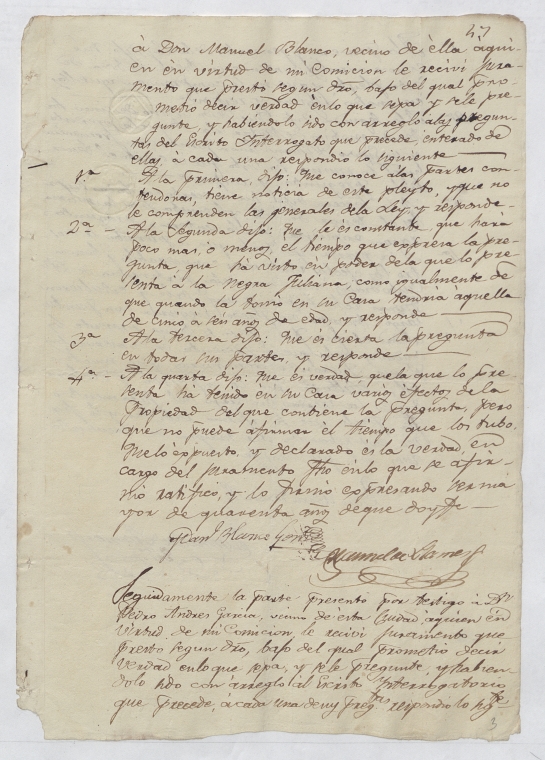 47
à Don Manuel Blanco, vecino de èlla àqui-
en en virtud de mi Comicion le recivi jura-
mento que prestò segun dro, baxo del qual pro-
metiò decir verdad en lo que sepa, y se le pre-
gunte, y habiendolo sido con arreglo alas pregun-
tas del Escrito Interrogato que precede, enterado de
ellas à cada una respondiò lo siguiente
1ª A la primera, dijo: Que conoce àlas partes con-
tendonas, tiene noticia de este pleyto, y que no
le comprenden las generales de la Ley, y responde-
2ª - A la segunda dijo: Que le es constante, que harà
poco mas, o menos, el tiempo que expresa la pre-
gunta, que hà visto en poder de la que lo pre-
senta à la negra Juliana, como igualmente de
que quando la tomò en su Casa tendria àquella
de cinco à seis años de edad, y responde
3ª A la tercera dijo: Que es cierta la pregunta
en todas sus partes, y responde
4ª - A la quarta dijo: Que es verdad que la que lo pre-
senta hà tenido en su Casa varios èfectos de la
Propiedad del que contiene la Pregunta, pero
que no puede afirmar el tiempo que los tubo.
Que lo èxpuesto, y declarado es la verdad en
cargo del juramento fho en lo que se afir-
mò ratificò, y lo firmò expresando ser ma-
yor de quarenta años de que doy fe-
Manuel Blanco
Seguidamente la parte presentò por testigo à Dn
Pedro Andres Garcia, vecino de esta Ciudad, àquien en
virtud de mi Comicion le recivi juramento que
prestò segun dro, baxo del qual prometiò decir
verdad en lo que sepa, y se le pregunte, y habien-
dolo sido con arreglo àl Escrito Ynterrogatorio
que precede, à cada una de sus pregtas respondiò lo sigte